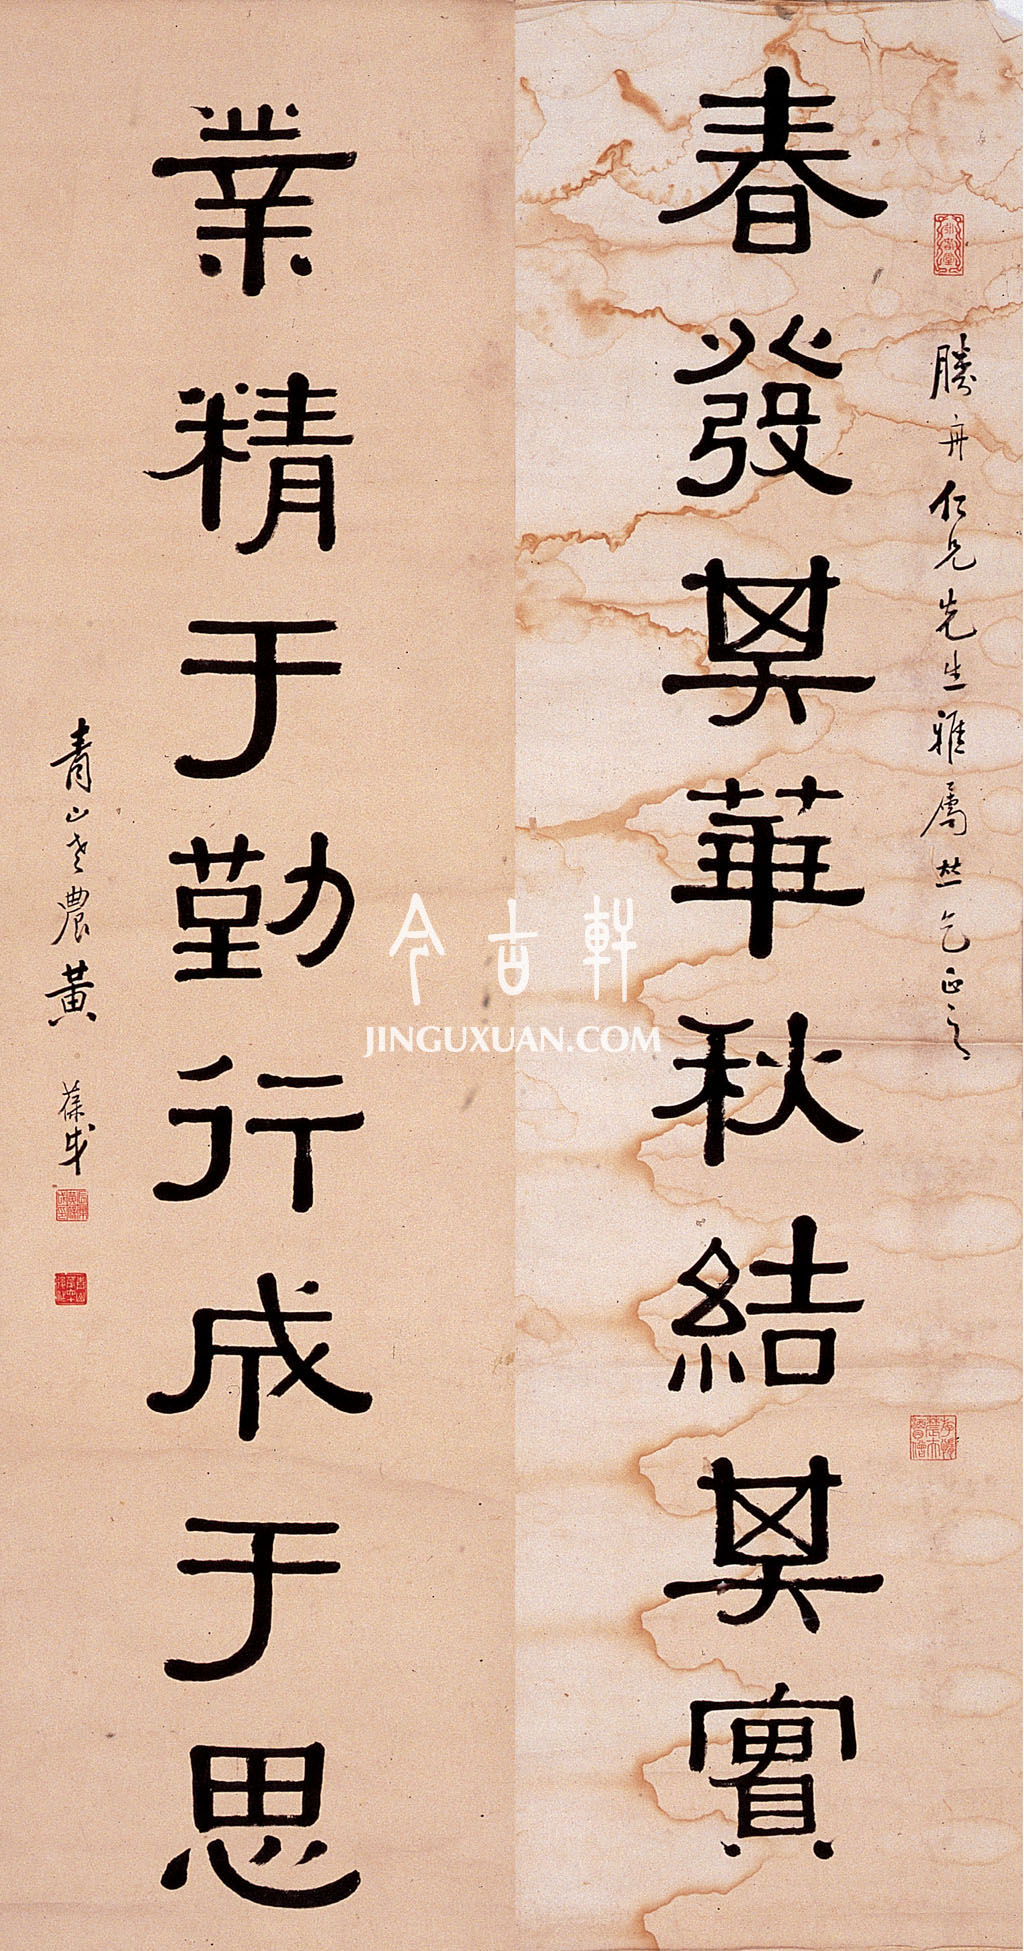 春發其華秋結其實
勝舟仁兄先生雅屬些乞正之
業精于勤行成于思
青山老農黃葆戉
今古軒
JINGUXUAN.COM